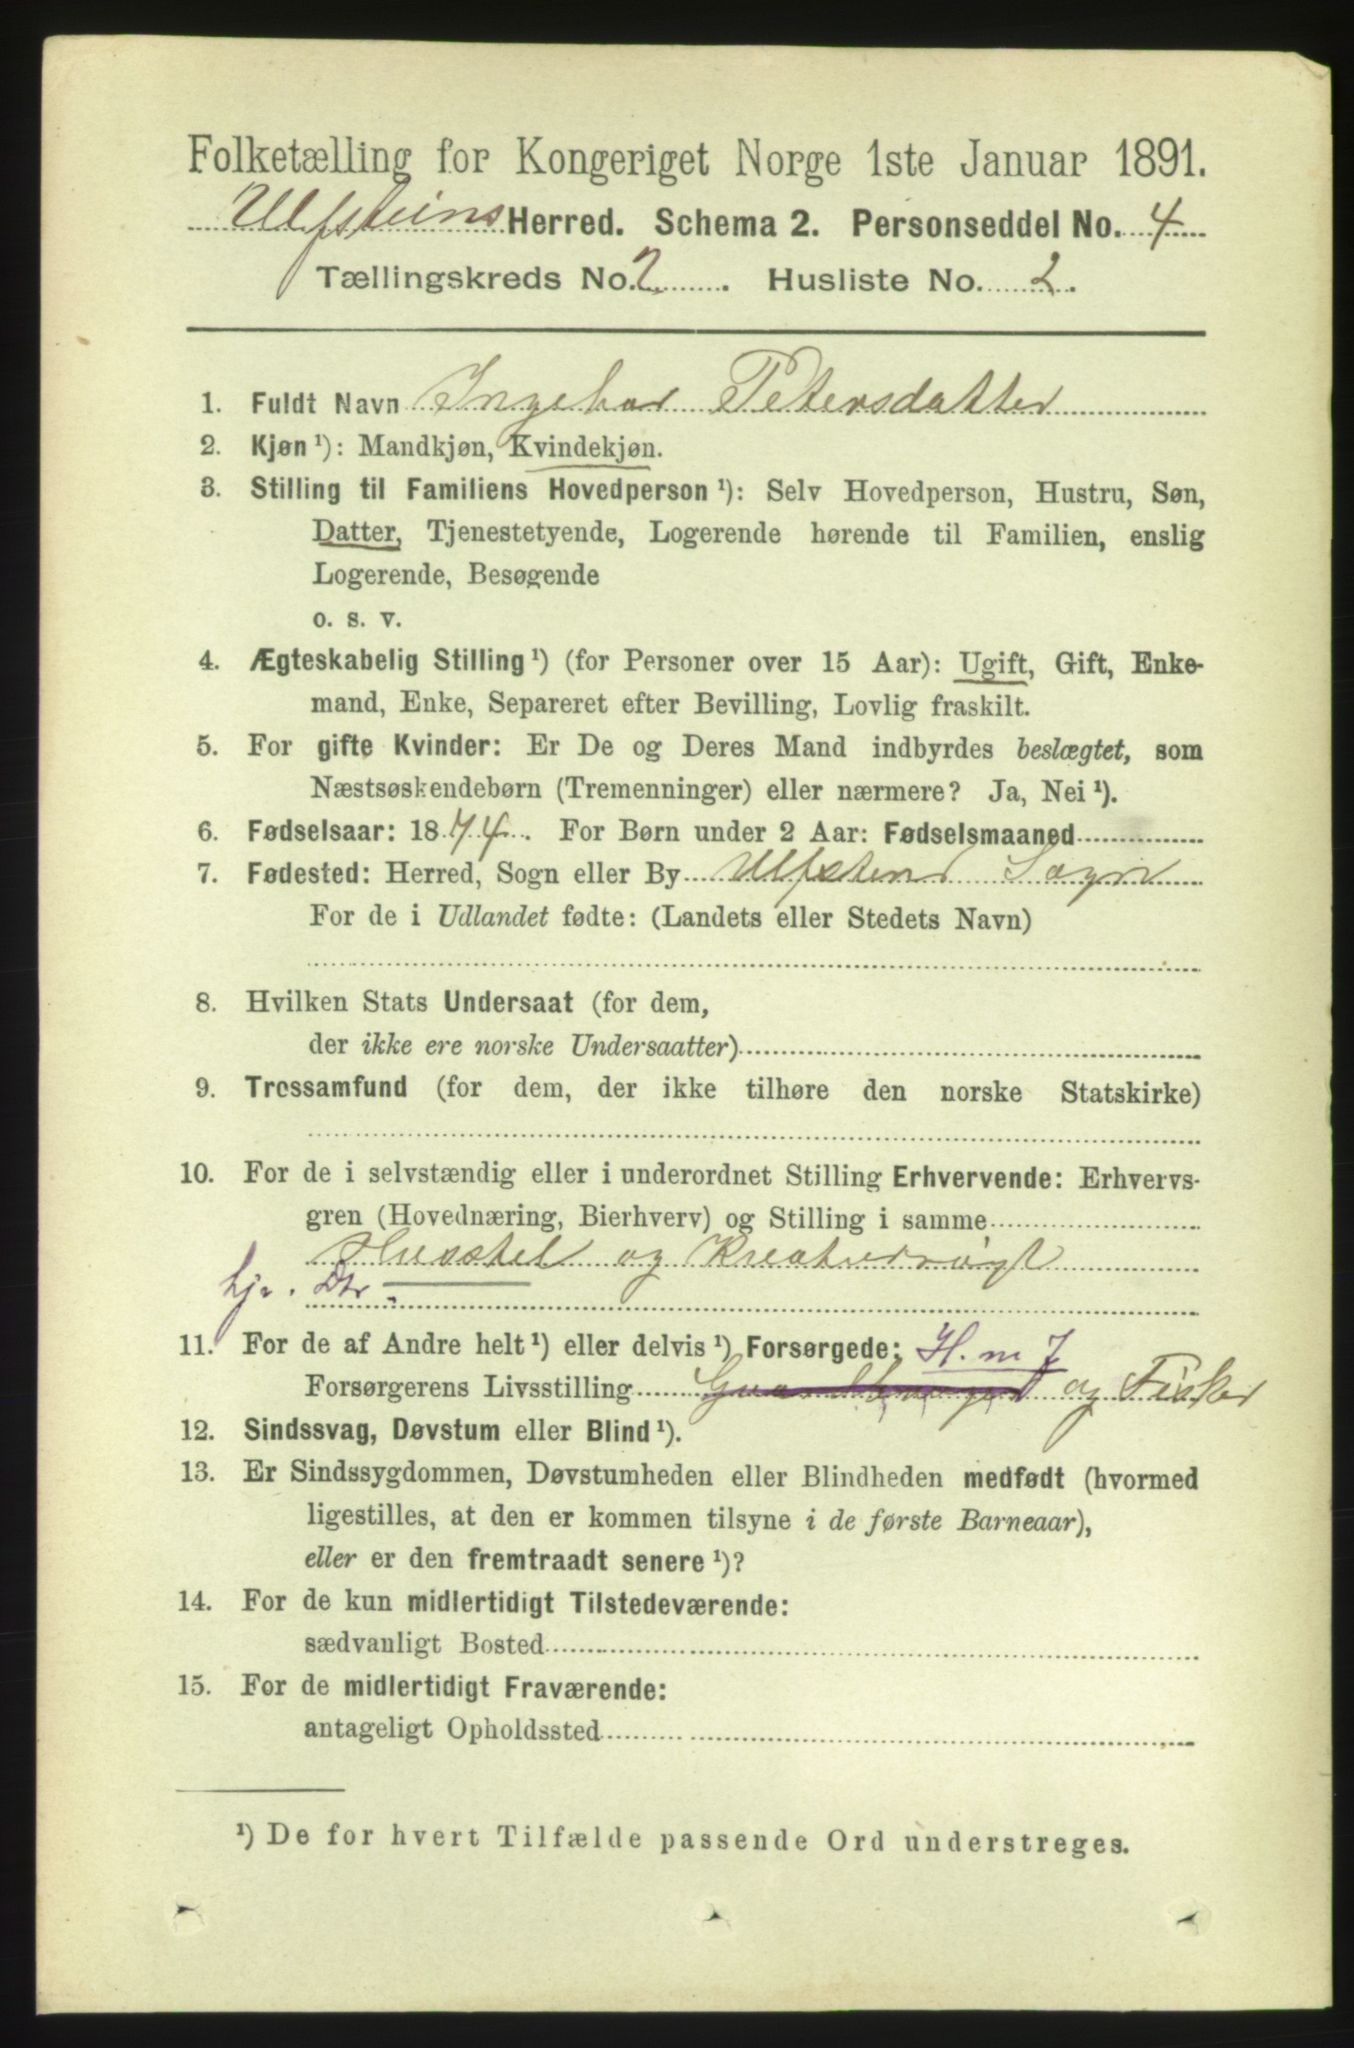 Folketælling for Kongeriget Norge 1ste Januar 1891.
Ulfsteins Herred. Schema 2. Personseddel No. 4
Tællingskreds No. 2. Husliste No. 2.
1. Fuldt Navn Ingebor Petersdatter
2. Kjøn ¹): Mandkjøn, Kvindekjøn.
3. Stilling til Familiens Hovedperson ¹): Selv Hovedperson, Hustru, Søn,
Datter, Tjenestetyende, Logerende hørende til Familien, enslig
Logerende, Besøgende
o. s. v.
4. Ægteskabelig Stilling ¹) (for Personer over 15 Aar): Ugift, Gift, Enke-
mand, Enke, Separeret efter Bevilling, Lovlig fraskilt.
5. For gifte Kvinder: Er De og Deres Mand indbyrdes beslægtet, som
Næstsøskendebørn (Tremenninger) eller nærmere? Ja, Nei ¹).
6. Fødselsaar: 1874. For Børn under 2 Aar: Fødselsmaaned
7. Fødested: Herred, Sogn eller By Ulfstens Sogn
For de i Udlandet fødte: (Landets eller Stedets Navn)
8. Hvilken Stats Undersaat (for dem,
der ikke ere norske Undersaatter)
9. Trossamfund (for dem, der ikke tilhøre den norske Statskirke)
10. For de i selvstændig eller i underordnet Stilling Erhvervende: Erhvervs-
gren (Hovednæring, Bierhverv) og Stilling i samme
Husstel og Kreaturrøgt
hj. Dtr.
11. For de af Andre helt ¹) eller delvis ¹) Forsørgede: H. m 7
Forsørgerens Livsstilling og Fisker
12. Sindssvag, Døvstum eller Blind ¹).
13. Er Sindssygdommen, Døvstumheden eller Blindheden medfødt (hvormed
ligestilles, at den er kommen tilsyne i de første Barneaar),
eller er den fremtraadt senere ¹)?
14. For de kun midlertidigt Tilstedeværende:
sædvanligt Bosted
15. For de midlertidigt Fraværende:
antageligt Opholdssted
¹) De for hvert Tilfælde passende Ord understreges.